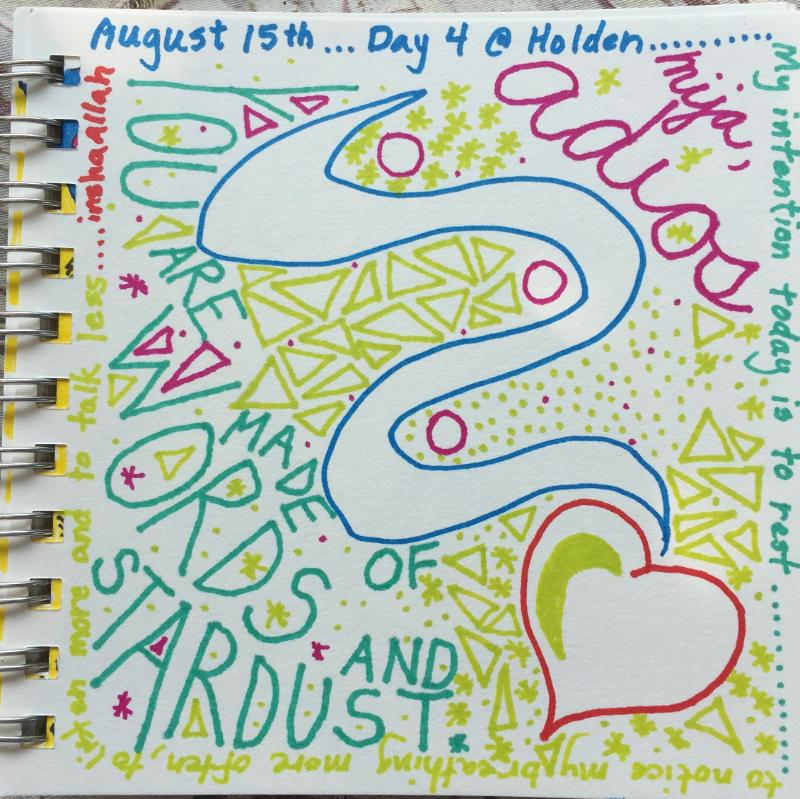 August 15th ... Day 4 @ Holden..........
mija,
adios
YOU
ARE
MADE
OF
STARDUST
AND
WORDS
My intention today is to rest ..........
to notice my breathing more often, to list
en more and to talk less.....inshaallah